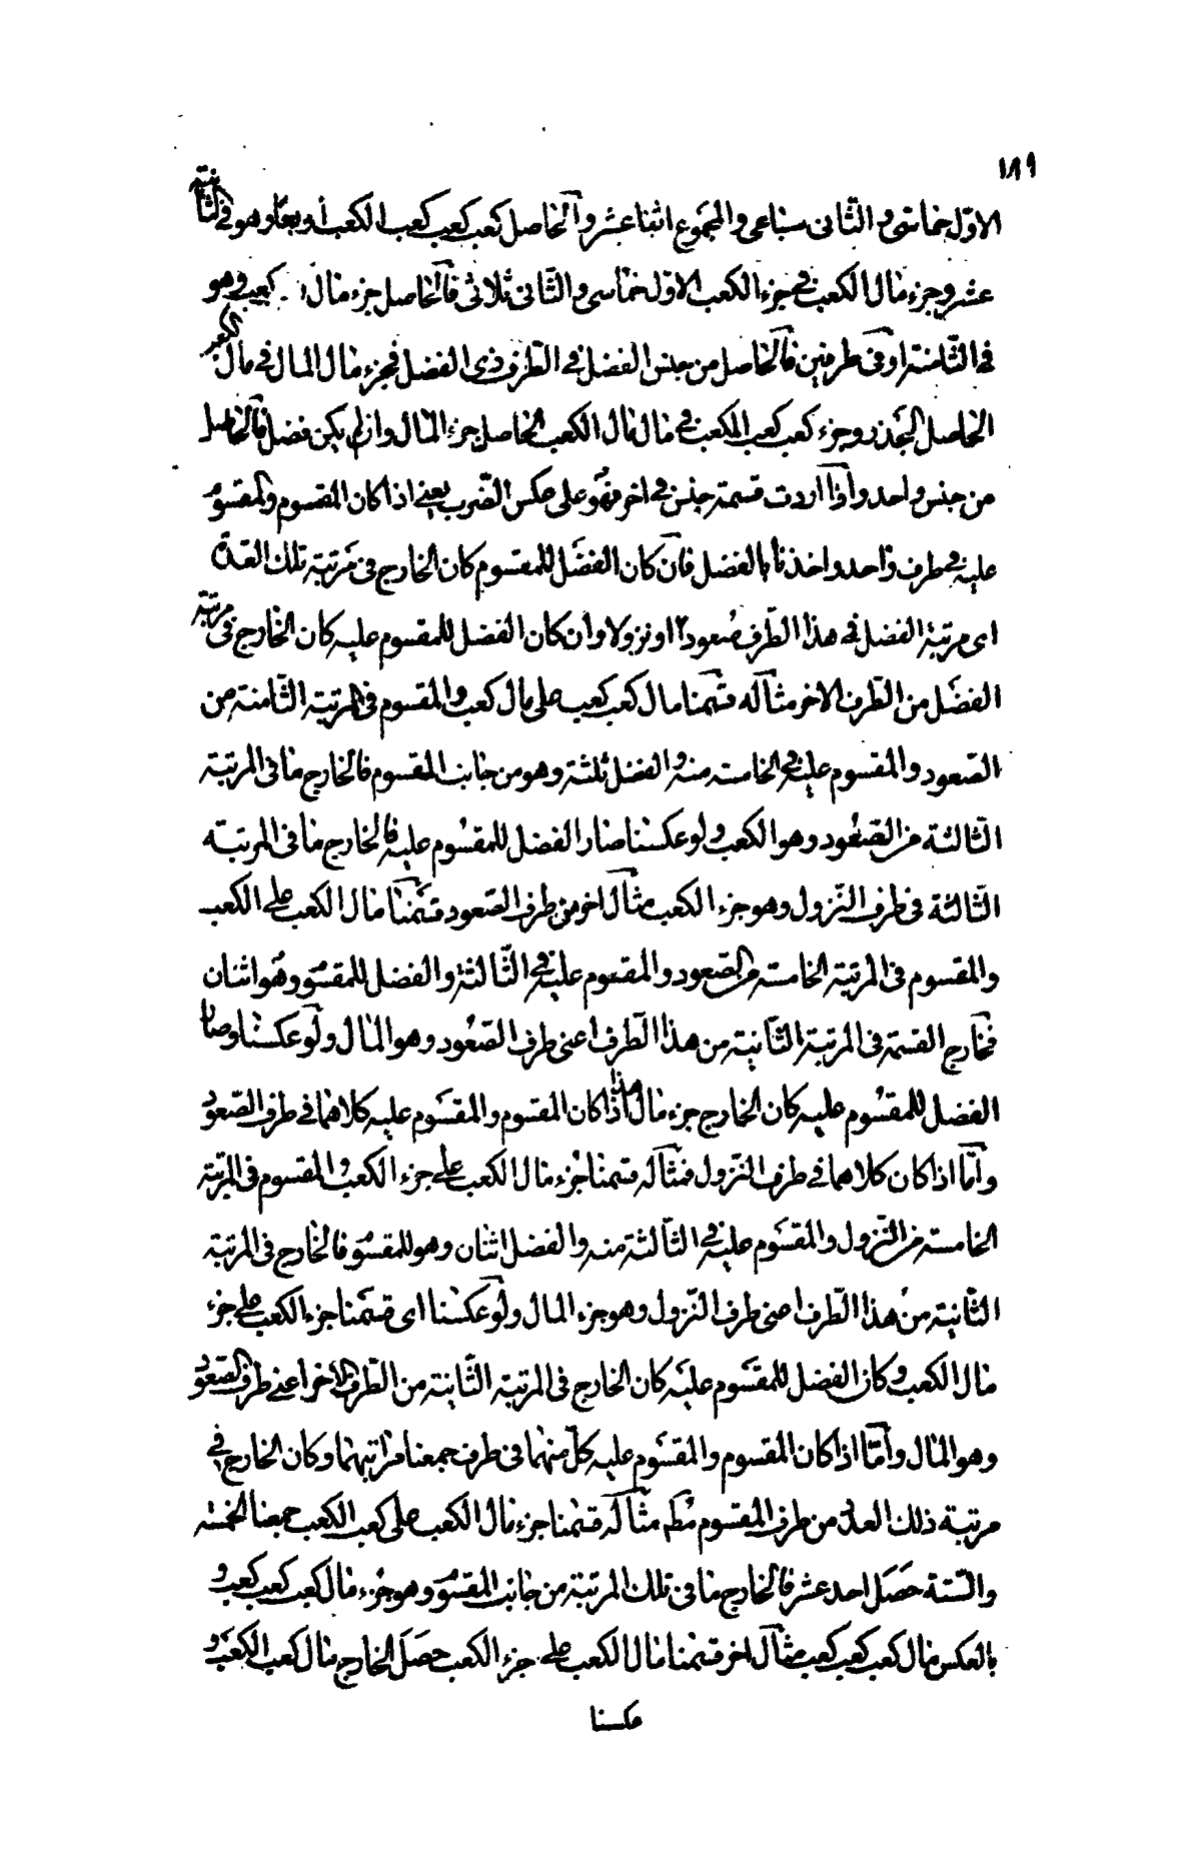 ١٨٩
الاوّل خماسّى والثّانى سباعى والمجموع اثنا عشر والحاصل كعب كعب كعب الكعب اربعًا وهو فى الثانية
عشر وجزء مال الكعب فى جزء الكعب الاوّل خماسى والثّانى ثلاثى فالحاصل جزء مال كعب كعب وهو
فى الثّامنة او فى طرفين فالحاصل من جنس الفضل فى الطرف ذى الفضل فجزء مال المال فى مال الكعب
الحاصل الجذر وجزء كعب كعب الكعب فى مال مال الكعب الحاصل جزء المال وان لم يكن فضل فالحاصل
من جنس واحد واذا اردت قسمة جنس فى اخر فهو على عكس الضّرب يعنى اذا كان المقسوم والمقسوم
عليه فى طرف واحد واخذنا بالفضل فان كان الفضل للمقسوم كان الخارج فى مرتبة تلك العدّة
اى مرتبة الفضل فى هذا الطّرف صُعودًا او نزولا وان كان الفضل للمقسوم عليه كان الخارج فى مرتبة
الفضل من الطّرف الاخر مثاله قسمنا مال كعب كعب على مال كعب والمقسوم فى المرتبة الثّامنة من
الصّعود والمقسوم عليه فى الخامسة منه والفضل ثلثة وهو من جانب المقسوم فالخارج ما فى المرتبة
الثّالثة من الصّعُود وهو الكعب ولو عكسنا صار الفضل للمقسُوم عليه فالخارج ما فى المرتبة
الثّالثة فى طرف النّزول وهو جزء الكعب مثال اخر من طرف الصّعود قسَمْنا مال الكعب على الكعب
والمقسوم فى المرتبة الخامسة من الصّعود والمقسوم عليه فى الثّالثة والفضل للمقسوم وهو اثنان
فخارج القسمة فى المرتبة الثّانية من هذا الطّرف اعنى طرف الصّعُود وهو المال ولو عكسنا وصار
الفضل للمقسُوم عليه كان الخارج جزء مال هذا اذا كان المقسوم والمقسَوم عليه كلاهما فى طرف الصّعود
وامّا اذا كان كلاهما فى طرف النّزول فمثاله قسمنا جُزء مال الكعب على جزء الكعب والمقسوم فى المرتبة
الخامسة من النّزول والمقسَوم عليه فى الثّالثة منه والفضل اثنان وهو للمقسوم فالخارج فى المرتبة
الثّانية من هذا الطّرف اعنى طرف النّزول وهو جزء المال ولو عكسْنا اى قسَمنا جزء الكعب على جزء
مال الكعب وكان الفضل للمقسَوم عليه كان الخارج فى المرتبة الثّانية من الطّرف الاخر اعنى طرف الصّعود
وهو المال وامّا اذا كان المقسوم والمقسَوم عليه كلّ منهما فى طرف جمعنا مراتبهما وكان الخارج فى
مرتبة ذلك العدد من طرف المقسوم مثاله قسمنا جزء مال الكعب على كعب الكعب جمعنا الخمسة
والسّتة حَصَل احد عشر فالخارج ما فى تلك المرتبة من جانب المقسوم وهو جُزء مال كعب كعب كعب و
بالعكس مال كعب كعب كعب مثال اخر قسَمنا مال الكعب على جزء الكعب حصَل الخارج مال كعب الكعب و
عكسنا